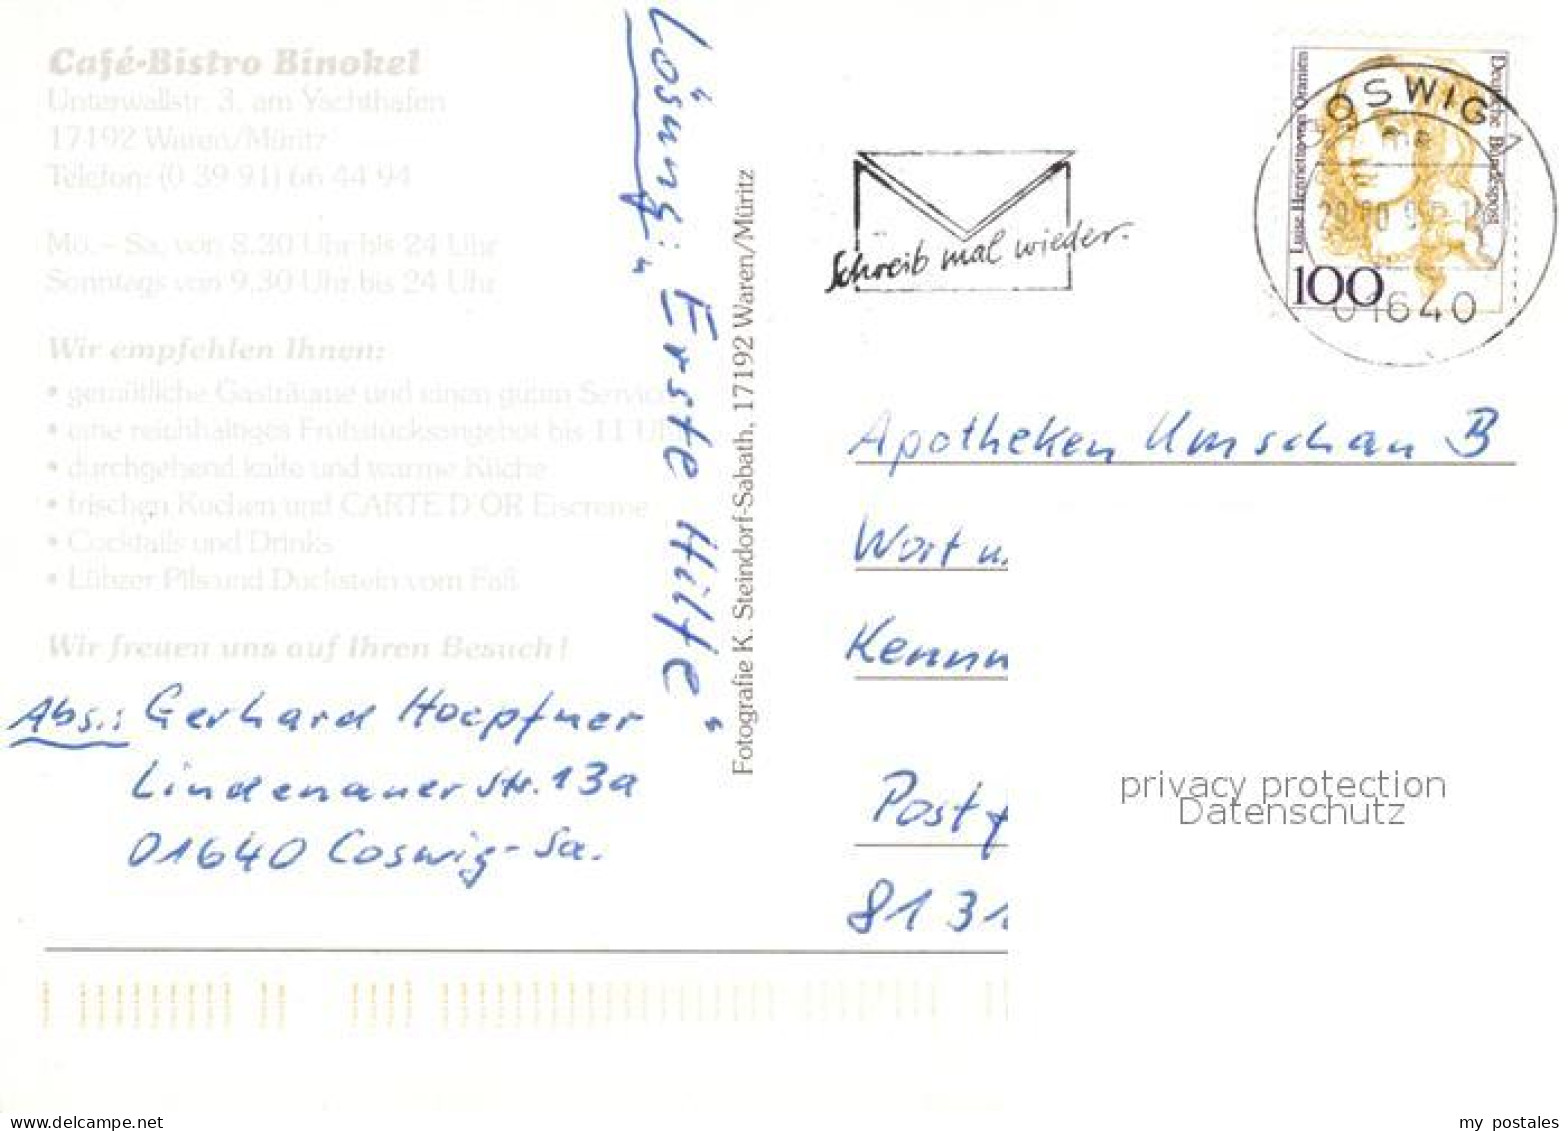 Café-Bistro Binokel
Unterwallstr. 3, am Yachthafen
17192 Waren/Müritz
Telefon: (0 39 91) 66 44 94
Mo. – Sa. von 8.30 Uhr bis 24 Uhr
Sonntags von 9.30 Uhr bis 24 Uhr
Wir empfehlen Ihnen:
• gemütliche Gasträume und einen guten Service
• eine reichhaltiges Frühstücksangebot bis 11 Uhr
• durchgehend kalte und warme Küche
• frischen Kuchen und CARTE D'OR Eiscreme
• Cocktails und Drinks
• Lübzer Pils und Duckstein vom Faß
Wir freuen uns auf Ihren Besuch!
Abs.: Gerhard Hoepfner
Lindenauer Str. 13a
01640 Coswig-Sa.
Lösung: "Erste Hilfe"
Fotografie K. Steindorf-Sabath, 17192 Waren/Müritz
Schreib mal wieder.
Luise Henriette von Oranien
Deutsche Bundespost
100
OSWIG
01640
Apotheken Umschau B
Wort u.
Kennn
Postf
81 31
privacy protection
Datenschutz
www.delcampe.net
my_postales